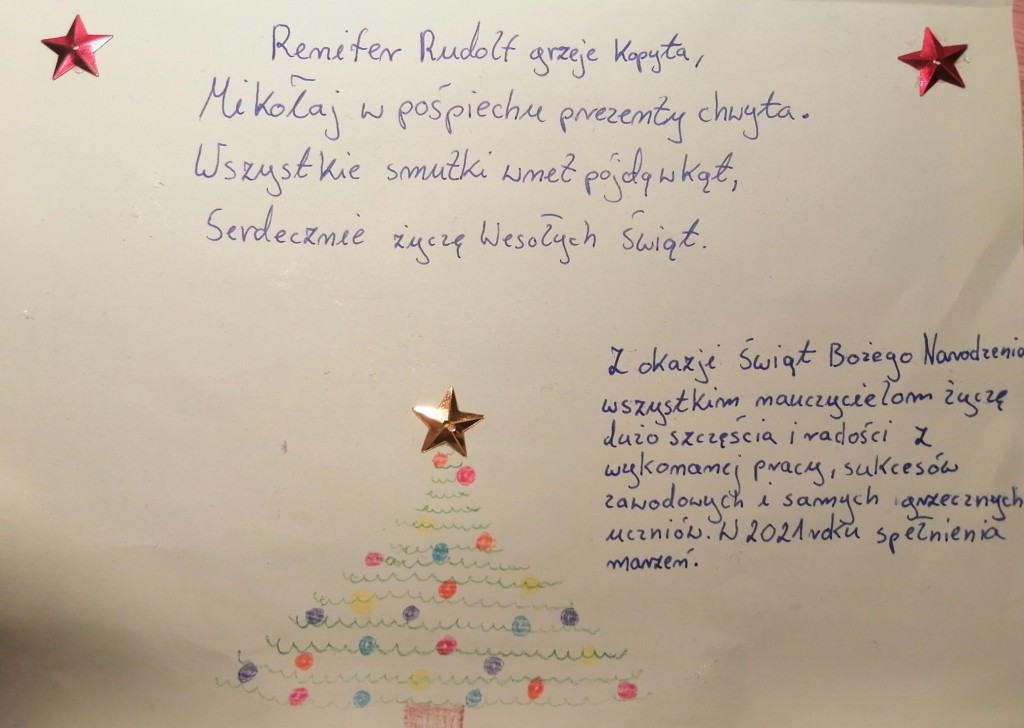 Renifer Rudolf grzeje kopyta,
Mikołaj w pośpiechu prezenty chwyta.
Wszystkie smutki wnet pójdą w kąt,
Serdecznie życzę Wesołych Świąt.
Z okazji Świąt Bożego Narodzenia
wszystkim nauczycielom życzę
dużo szczęścia i radości z
wykonanej pracy, sukcesów
zawodowych i samych grzecznych
uczniów. W 2021 roku spełnienia
marzeń.